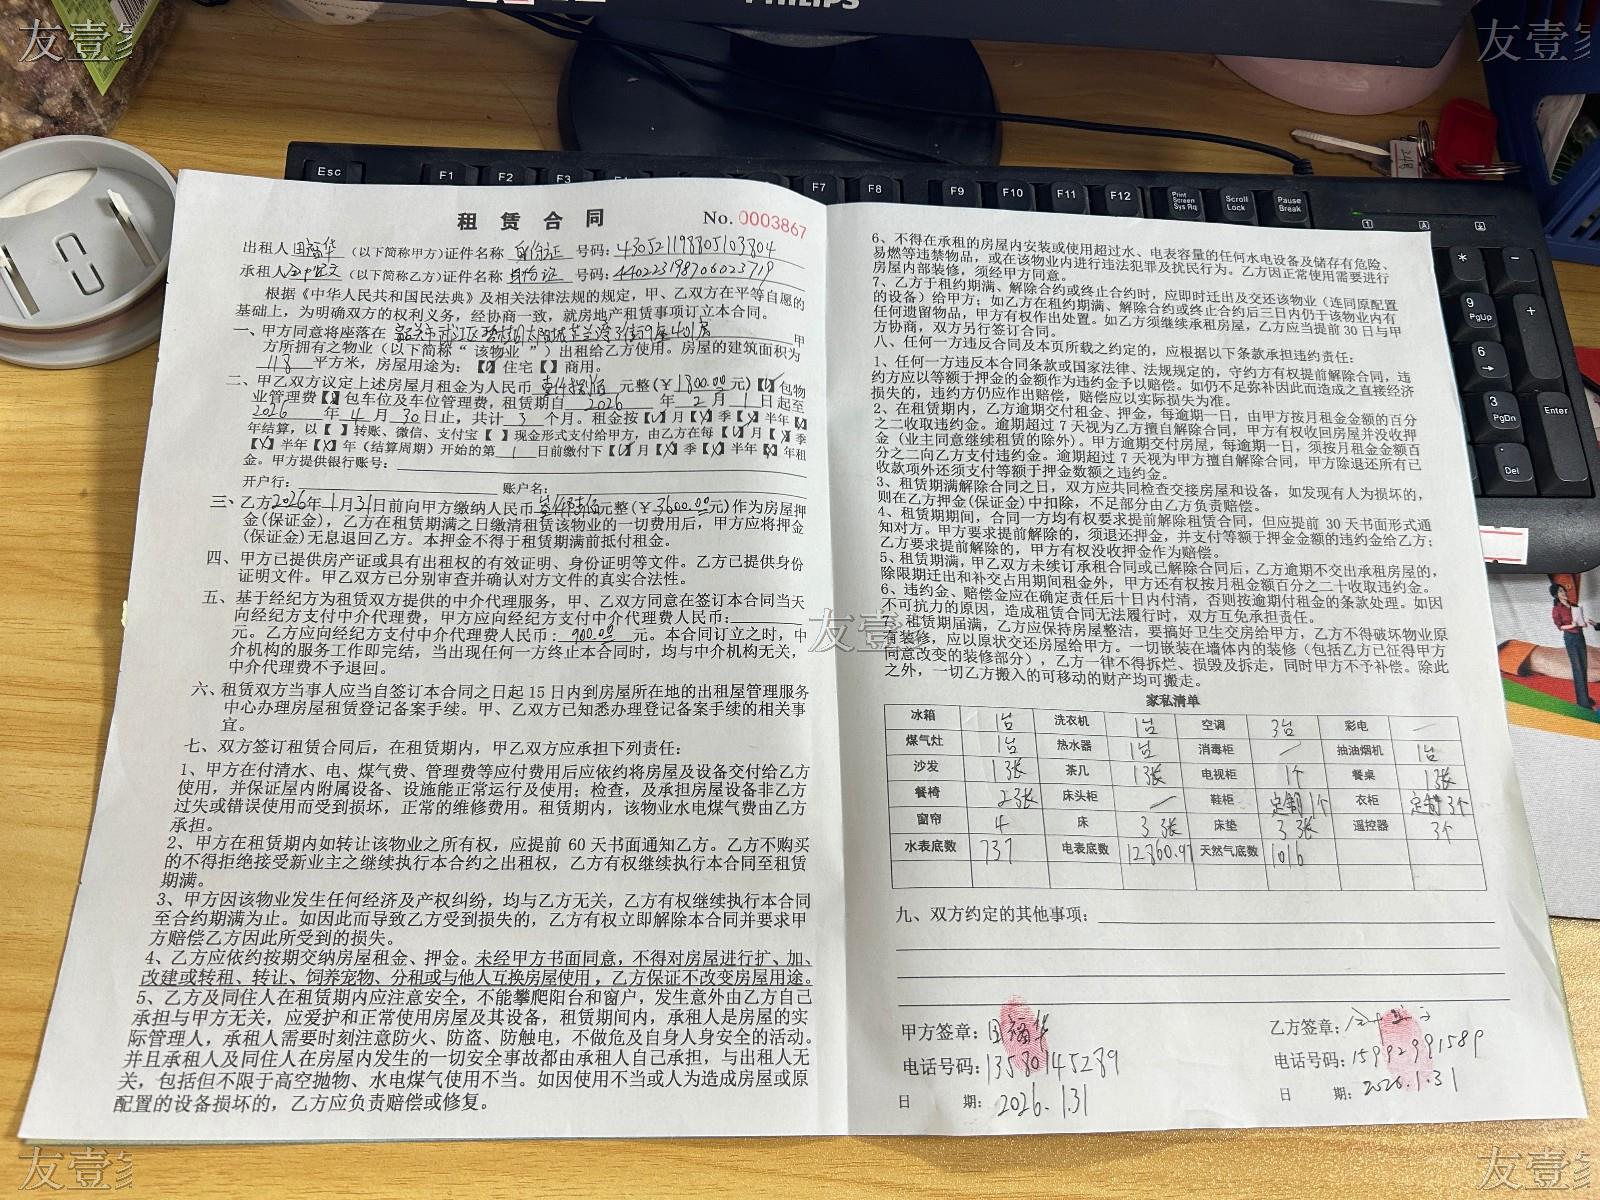 友壹家
PHILIPS
友壹家
Esc F1 F2 F3 F7 F8 F9 F10 F11 F12 Print Screen Sys Rq Scroll Lock Pause Break
租赁合同 No. 0003867
出租人 田福华 (以下简称甲方)证件名称 身份证 号码: 430521198805103804
承租人 (以下简称乙方)证件名称 身份证 号码: 440223198706023719
根据《中华人民共和国民法典》及相关法律法规的规定，甲、乙双方在平等自愿的
基础上，为明确双方的权利义务，经协商一致，就房地产租赁事项订立本合同。
一、甲方同意将座落在 韶关市武江区 太阳城芷兰湾 9座401房 甲
方所拥有之物业(以下简称“该物业”)出租给乙方使用。房屋的建筑面积为
118 平方米，房屋用途为：【√】住宅【 】商用。
二、甲乙双方议定上述房屋月租金为人民币 壹仟捌佰 元整(￥1800.00元)【√】包物
业管理费【X】包车位及车位管理费，租赁期自 2026 年 2 月 1 日起至
2026 年 4 月 30 日止，共计 3 个月。租金按【√】月【X】季【X】半年【X】
年结算，以【 】转账、微信、支付宝【 】现金形式支付给甲方，由乙方在每【√】月【X】季
【X】半年【X】年（结算周期）开始的第 1 日前缴付下【√】月【X】季【X】半年【X】年租
金。甲方提供银行账号：
开户行： 账户名：
三、乙方2026年1月31日前向甲方缴纳人民币 元整(￥3600.00元)作为房屋押
金(保证金)，乙方在租赁期满之日缴清租赁该物业的一切费用后，甲方应将押金
(保证金)无息退回乙方。本押金不得于租赁期满前抵付租金。
四、甲方已提供房产证或具有出租权的有效证明、身份证明等文件。乙方已提供身份
证明文件。甲乙双方已分别审查并确认对方文件的真实合法性。
五、基于经纪方为租赁双方提供的中介代理服务，甲、乙双方同意在签订本合同当天
向经纪方支付中介代理费，甲方应向经纪方支付中介代理费人民币：
元。乙方应向经纪方支付中介代理费人民币：900.00 元。本合同订立之时，中
介机构的服务工作即完结，当出现任何一方终止本合同时，均与中介机构无关，
中介代理费不予退回。
六、租赁双方当事人应当自签订本合同之日起 15 日内到房屋所在地的出租屋管理服务
中心办理房屋租赁登记备案手续。甲、乙双方已知悉办理登记备案手续的相关事
宜。
七、双方签订租赁合同后，在租赁期内，甲乙双方应承担下列责任：
1、甲方在付清水、电、煤气费、管理费等应付费用后应依约将房屋及设备交付给乙方
使用，并保证屋内附属设备、设施能正常运行及使用；检查，及承担房屋设备非乙方
过失或错误使用而受到损坏，正常的维修费用。租赁期内，该物业水电煤气费由乙方
承担。
2、甲方在租赁期内如转让该物业之所有权，应提前 60 天书面通知乙方。乙方不购买
的不得拒绝接受新业主之继续执行本合约之出租权，乙方有权继续执行本合同至租赁
期满。
3、甲方因该物业发生任何经济及产权纠纷，均与乙方无关，乙方有权继续执行本合同
至合约期满为止。如因此而导致乙方受到损失的，乙方有权立即解除本合同并要求甲
方赔偿乙方因此所受到的损失。
4、乙方应依约按期交纳房屋租金、押金。未经甲方书面同意，不得对房屋进行扩、加、
改建或转租、转让、饲养宠物、分租或与他人互换房屋使用，乙方保证不改变房屋用途。
5、乙方及同住人在租赁期内应注意安全，不能攀爬阳台和窗户，发生意外由乙方自己
承担与甲方无关，应爱护和正常使用房屋及其设备，租赁期间内，承租人是房屋的实
际管理人，承租人需要时刻注意防火、防盗、防触电，不做危及自身人身安全的活动。
并且承租人及同住人在房屋内发生的一切安全事故都由承租人自己承担，与出租人无
关，包括但不限于高空抛物、水电煤气使用不当。如因使用不当或人为造成房屋或原
配置的设备损坏的，乙方应负责赔偿或修复。
6、不得在承租的房屋内安装或使用超过水、电表容量的任何水电设备及储存有危险、
易燃等违禁物品，或在该物业内进行违法犯罪及扰民行为。乙方因正常使用需要进行
房屋内部装修，须经甲方同意。
7、乙方于租约期满、解除合约或终止合约时，应即时迁出及交还该物业（连同原配置
的设备）给甲方；如乙方在租约期满、解除合约或终止合约后三日内仍于该物业内有
任何遗留物品，甲方有权作出处置。如乙方须继续承租房屋，乙方应当提前 30 日与甲
方协商，双方另行签订合同。
八、任何一方违反合同及本页所载之约定的，应根据以下条款承担违约责任：
1、任何一方违反本合同条款或国家法律、法规规定的，守约方有权提前解除合同，违
约方应以等额于押金的金额作为违约金予以赔偿。如仍不足弥补因此而造成之直接经济
损失的，违约方仍应作出赔偿，赔偿应以实际损失为准。
2、在租赁期内，乙方逾期交付租金、押金，每逾期一日，由甲方按月租金金额的百分
之二收取违约金。逾期超过 7 天视为乙方擅自解除合同，甲方有权收回房屋并没收押
金（业主同意继续租赁的除外)。甲方逾期交付房屋，每逾期一日，须按月租金金额百
分之二向乙方支付违约金。逾期超过 7 天视为甲方擅自解除合同，甲方除退还所有已
收款项外还须支付等额于押金数额之违约金。
3、租赁期满解除合同之日，双方应共同检查交接房屋和设备，如发现有人为损坏的，
则在乙方押金(保证金)中扣除，不足部分由乙方负责赔偿。
4、租赁期期间，合同一方均有权要求提前解除租赁合同，但应提前 30 天书面形式通
知对方。甲方要求提前解除的，须退还押金，并支付等额于押金金额的违约金给乙方；
乙方要求提前解除的，甲方有权没收押金作为赔偿。
5、租赁期满，甲乙双方未续订承租合同或已解除合同后，乙方逾期不交出承租房屋的，
除限期迁出和补交占用期间租金外，甲方还有权按月租金额百分之二十收取违约金。
6、违约金、赔偿金应在确定责任后十日内付清，否则按逾期付租金的条款处理。如因
不可抗力的原因，造成租赁合同无法履行时，双方互免承担责任。
7、租赁期届满，乙方应保持房屋整洁，要搞好卫生交房给甲方，乙方不得破坏物业原
有装修，应以原状交还房屋给甲方。一切嵌装在墙体内的装修（包括乙方已征得甲方
同意改变的装修部分），乙方一律不得拆烂、损毁及拆走，同时甲方不予补偿。除此
之外，一切乙方搬入的可移动的财产均可搬走。
友壹家
家私清单
冰箱 1台 洗衣机 1台 空调 3台 彩电 —
煤气灶 1台 热水器 1台 消毒柜 — 抽油烟机 1台
沙发 1张 茶几 1张 电视柜 1个 餐桌 1张
餐椅 2张 床头柜 — 鞋柜 定制1个 衣柜 定制3个
窗帘 4 床 3张 床垫 3张 遥控器 3个
水表底数 737 电表底数 12860.97 天然气底数 1016
九、双方约定的其他事项：
甲方签章：田福华
电话号码：13580145289
日 期：2026.1.31
乙方签章：
电话号码：15992991589
日 期：2026.1.31
* -
9 PgUp +
6 →
3 PgDn Enter
. Del
友壹家
友壹家